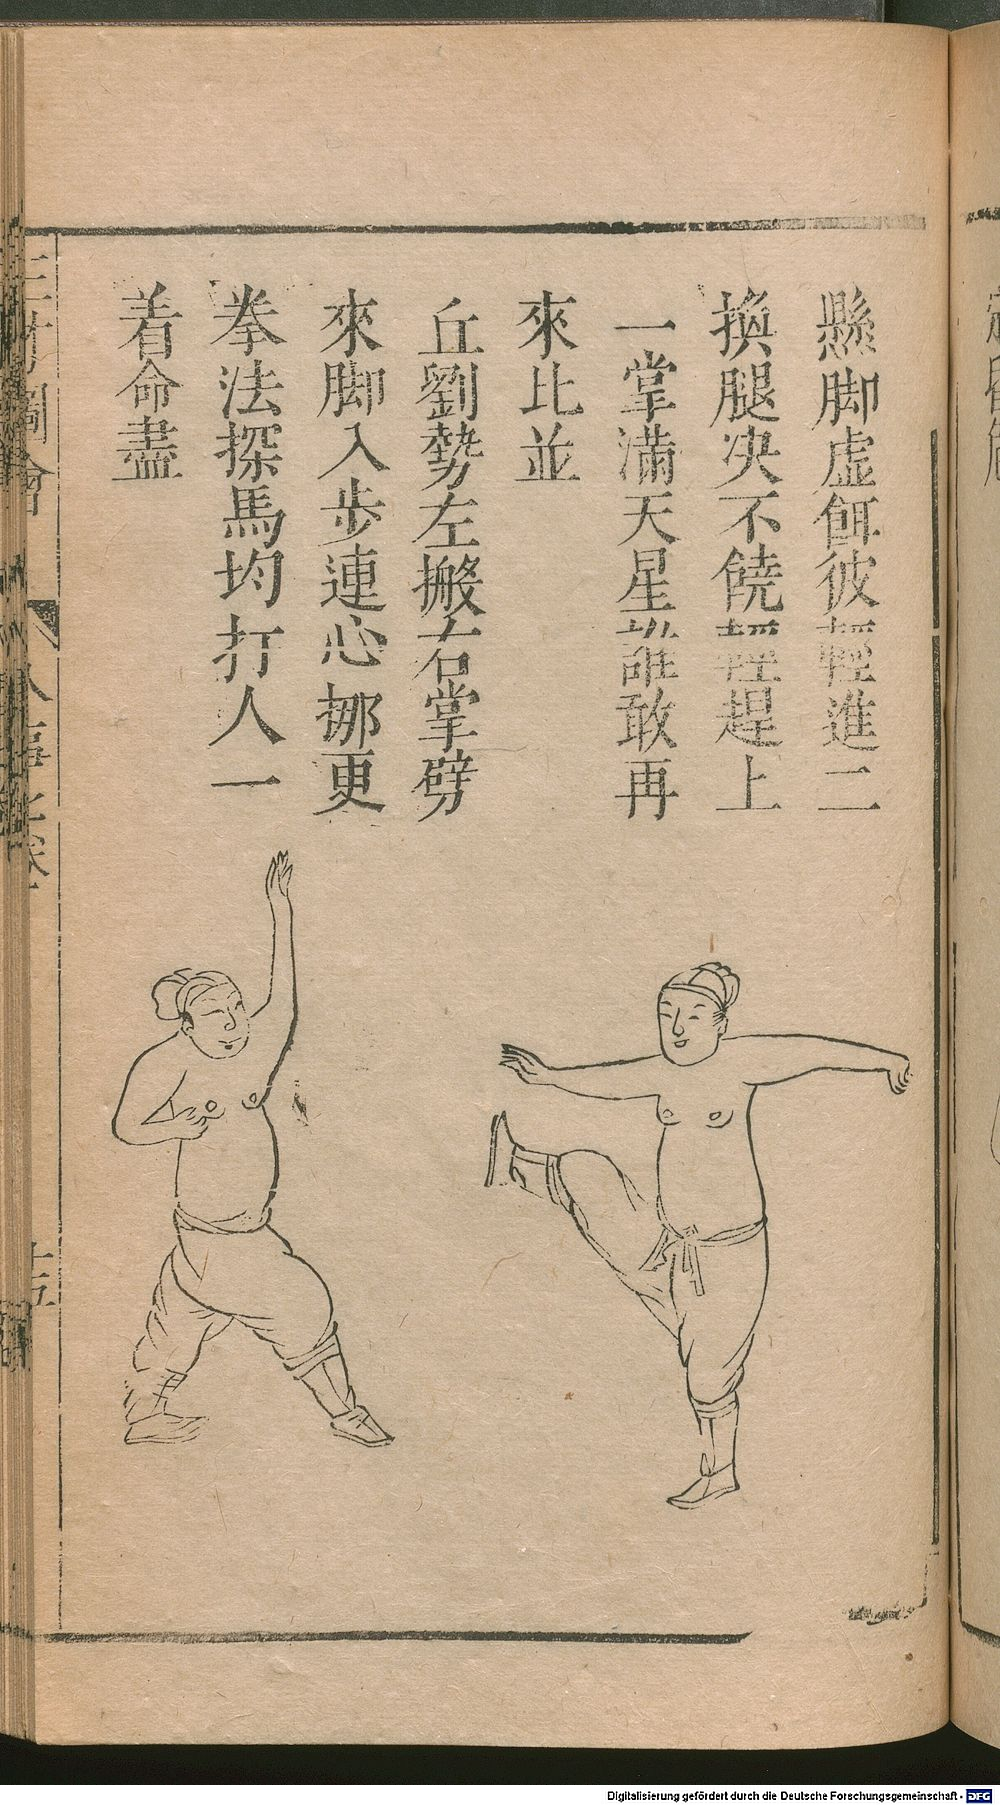 懸脚虛餌彼輕進二
換腿决不饒輕趕上
一掌滿天星誰敢再
來比並
丘劉勢左搬右掌劈
來脚入步連心挪更
拳法探馬均打人一
着命盡
三才圖會
人事七卷
十五
Digitalisierung gefördert durch die Deutsche Forschungsgemeinschaft - DFG